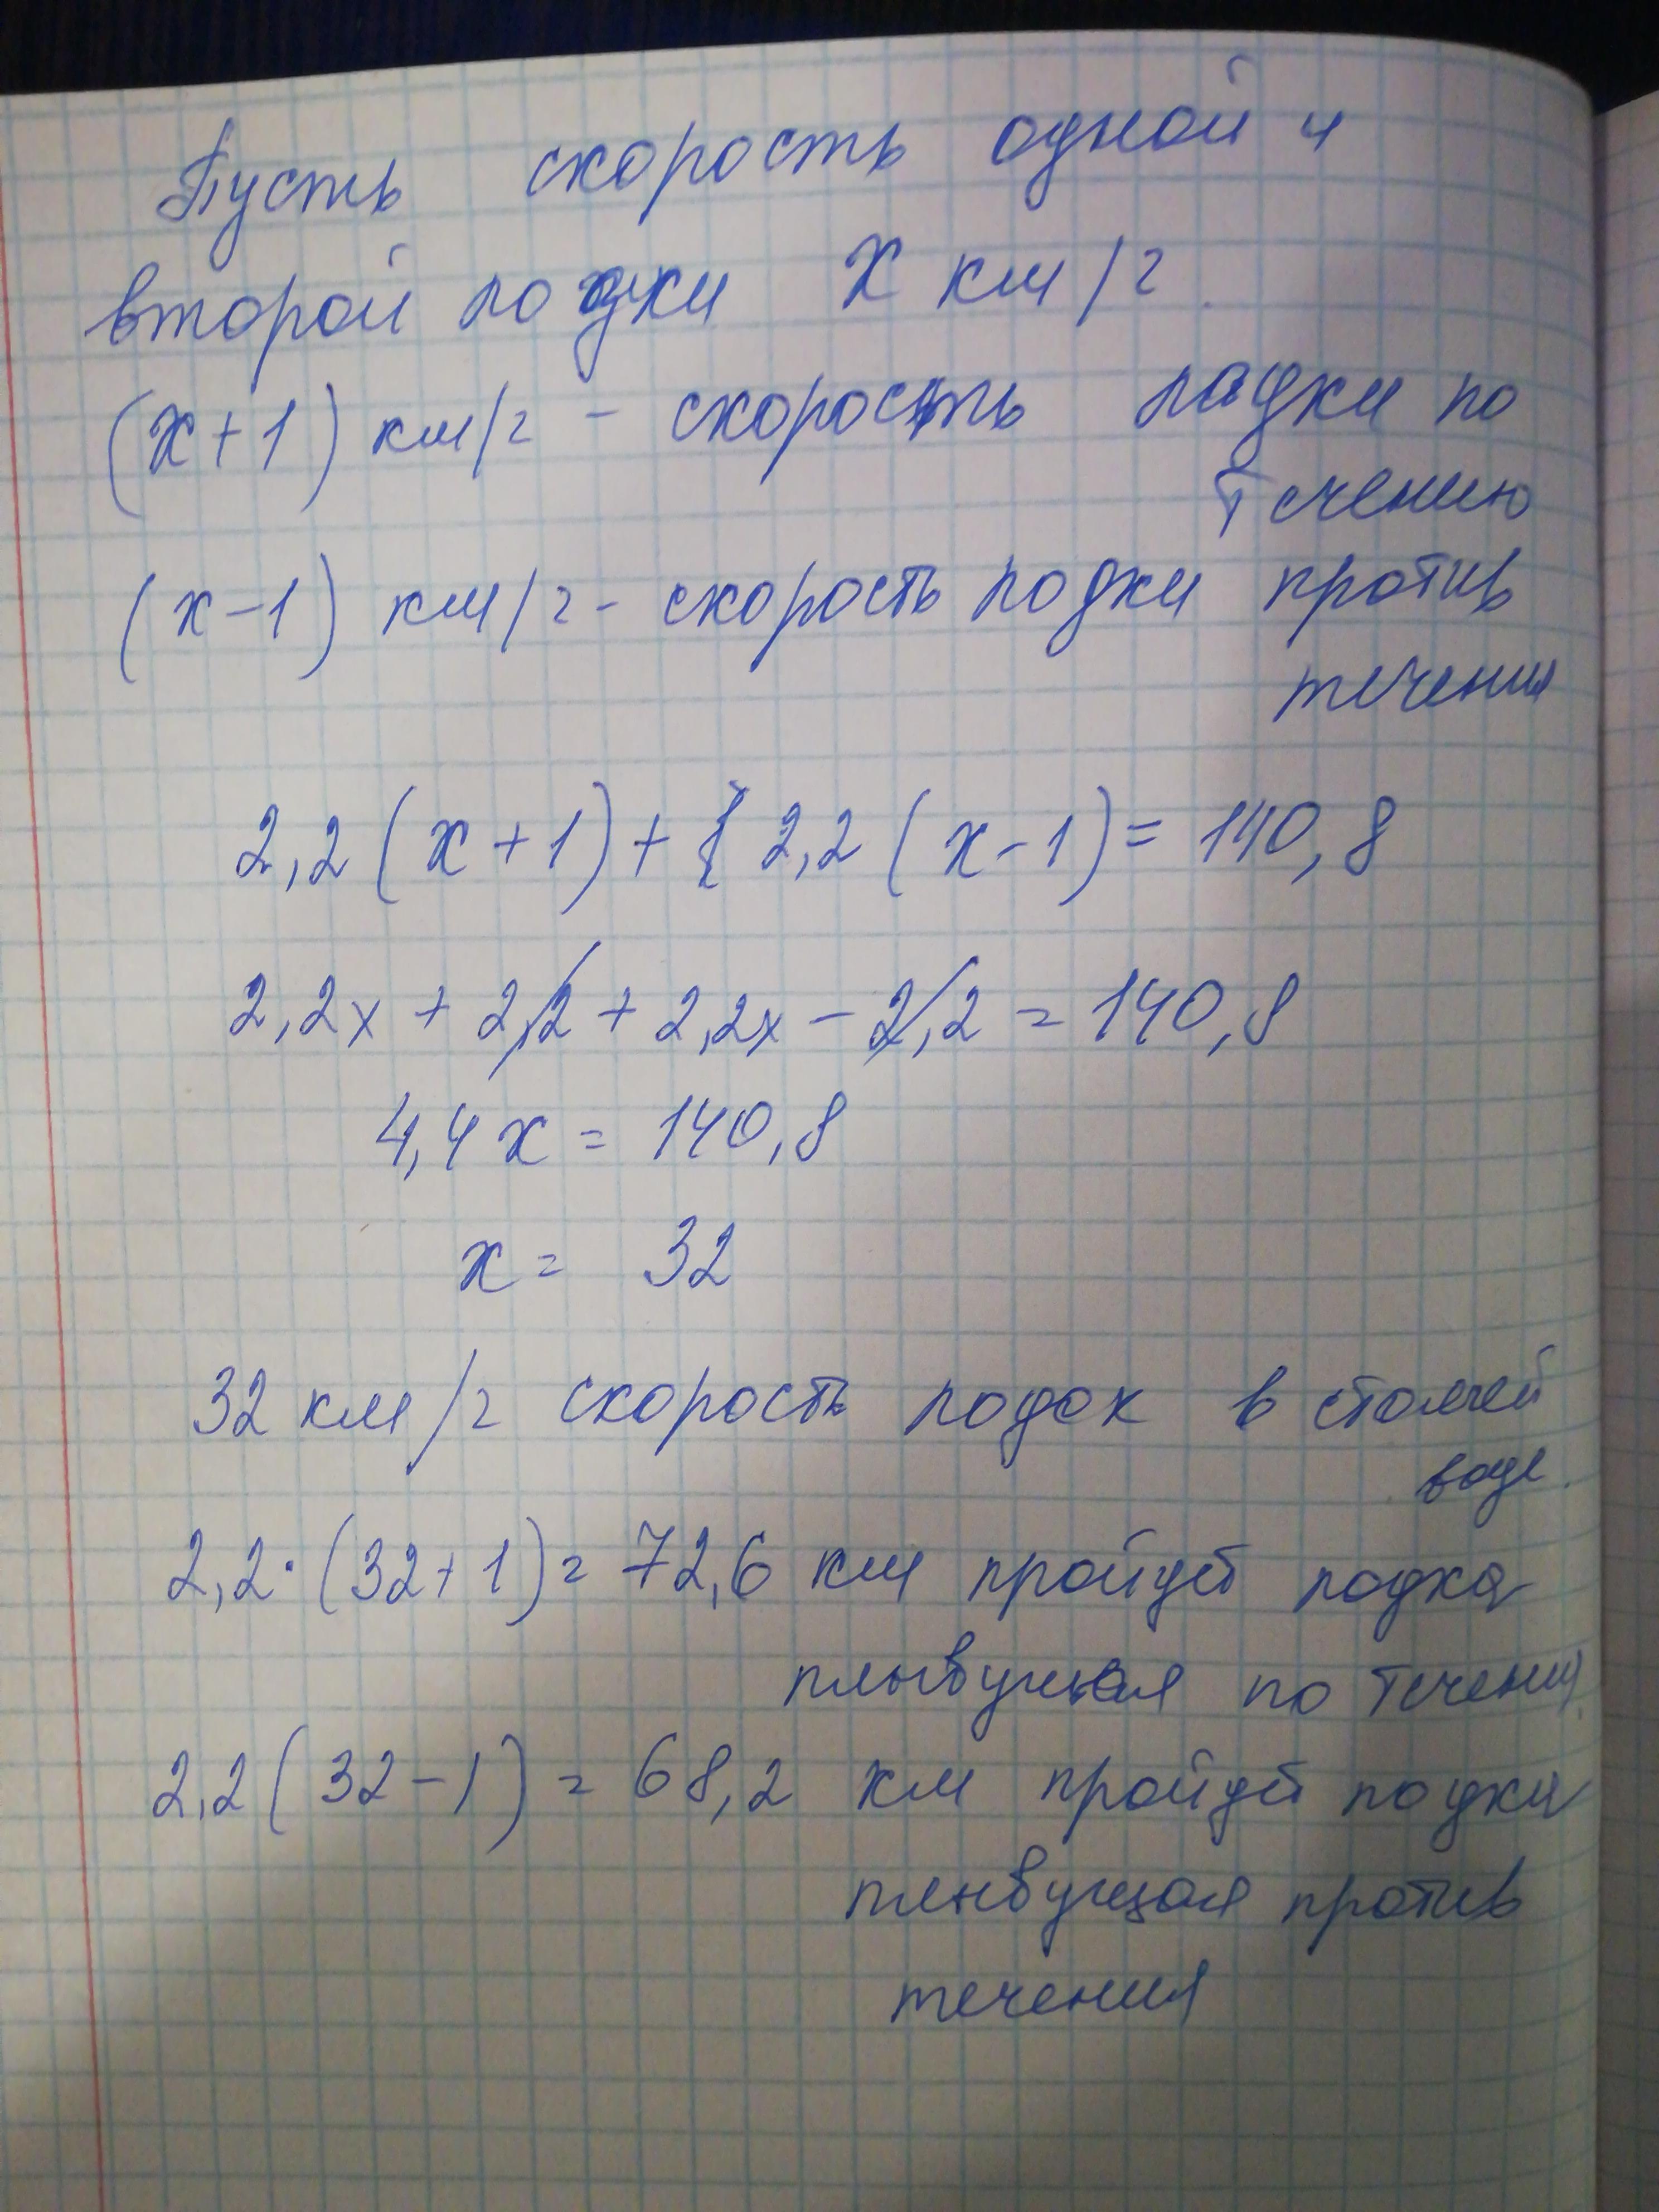 Пусть скорость одной и
второй лодки х км/г.
(х+1) км/г - скорость лодки по
течению
(х-1) км/г - скорость лодки против
течения
2,2(х+1)+ 2,2(х-1)=140,8
2,2х + 2,2 + 2,2х - 2,2 = 140,8
4,4х = 140,8
х = 32
32 км/г скорость лодок в стоячей
воде.
2,2·(32+1)= 72,6 км пройдет лодка
плывущая по течению
2,2(32-1) = 68,2 км пройдет лодка
плывущая против
течения